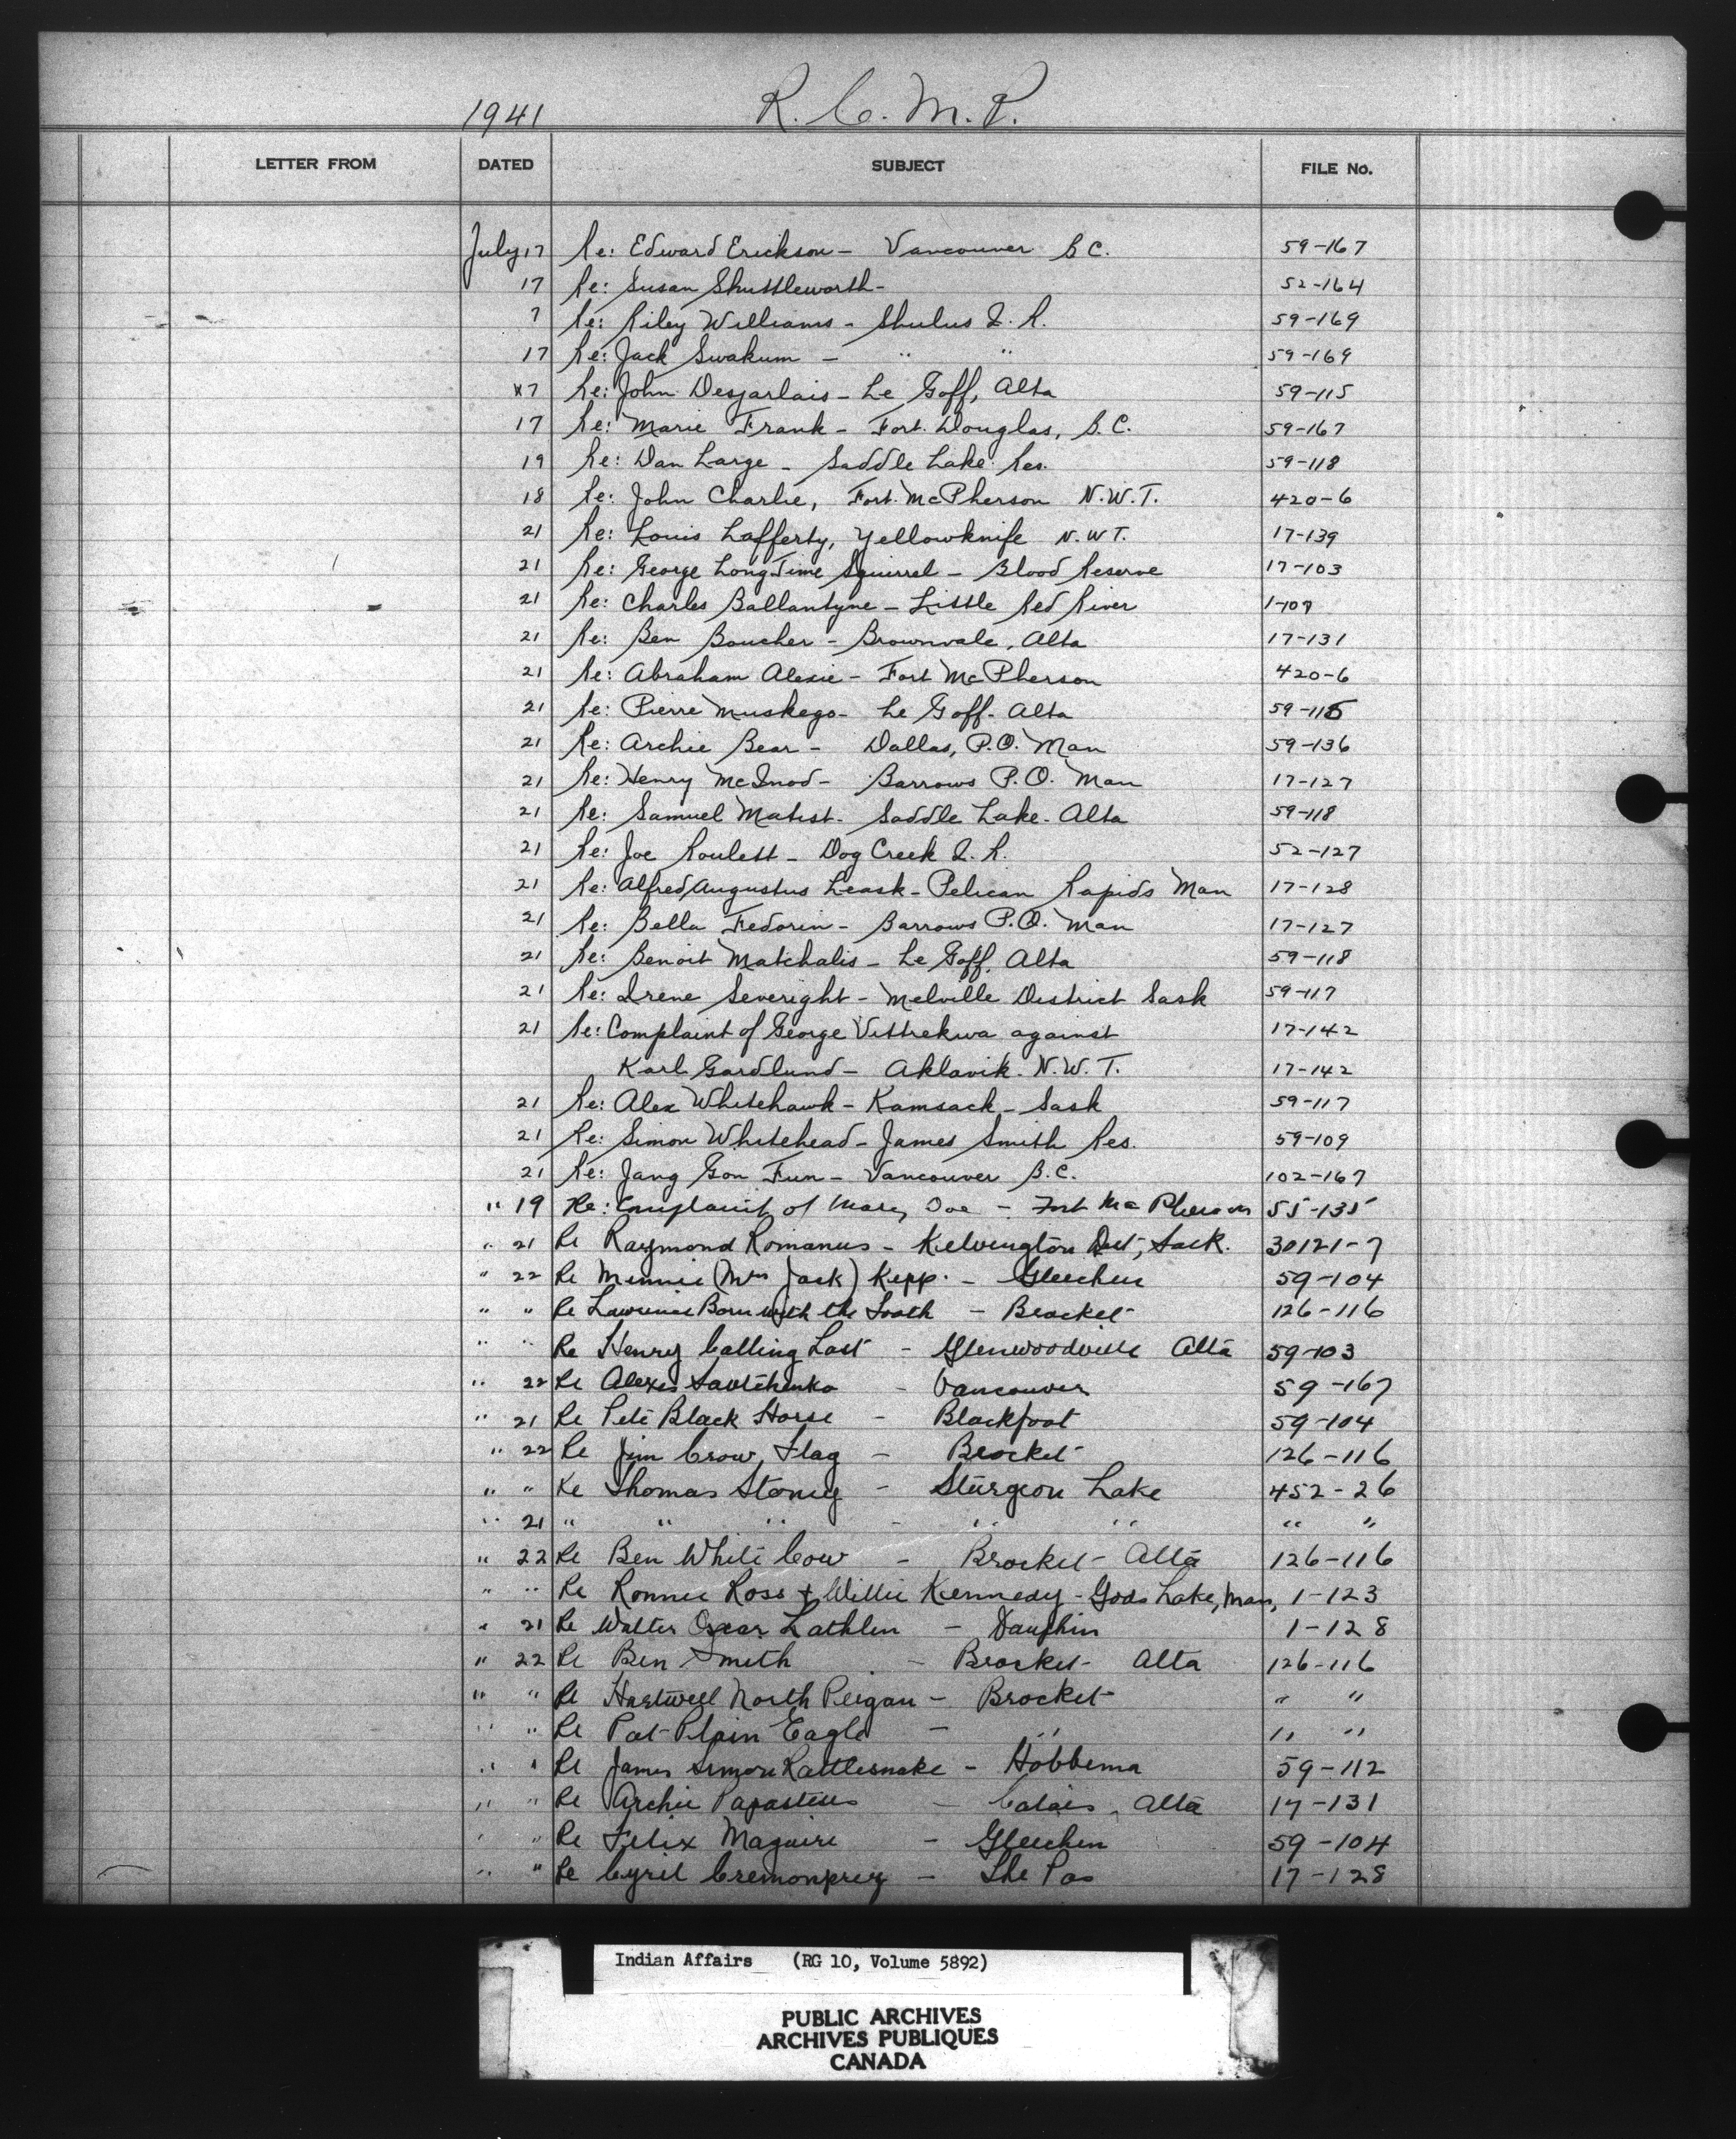 1941 R. C. M. P.
LETTER FROM DATED SUBJECT FILE No.
July 17 Re: Edward Erickson - Vancouver B C. 59-167
17 Re: Susan Shuttleworth - 52-164
7 Re: Riley Williams - Shulus I. R. 59-169
17 Re: Jack Swakum - " " 59-169
17 Re: John Desjarlais - Le Goff, Alta 59-115
17 Re: Marie Frank - Fort Douglas, B.C. 59-167
19 Re: Dan Large - Saddle Lake Res. 59-118
18 Re: John Charlie, Fort McPherson N.W.T. 420-6
21 Re: Louis Lafferty, Yellowknife N.W.T. 17-139
21 Re: George Long Time Squirrel - Blood Reserve 17-103
21 Re: Charles Ballantyne - Little Red River 1-109
21 Re: Ben Boucher - Brownvale, Alta 17-131
21 Re: Abraham Alexie - Fort McPherson 420-6
21 Re: Pierre Muskego - Le Goff - Alta 59-115
21 Re: Archie Bear - Dallas, P.O. Man 59-136
21 Re: Henry McInod - Barrows P.O. Man 17-127
21 Re: Samuel Matist - Saddle Lake - Alta 59-118
21 Re: Joe Roulett - Dog Creek I. R. 52-127
21 Re: Alfred Augustus Leask - Pelican Rapids Man 17-128
21 Re: Bella Fedorin - Barrows P.O. Man 17-127
21 Re: Benoit Matchalis - Le Goff, Alta 59-118
21 Re: Irene Severight - Melville District Sask 59-117
21 Re: Complaint of George Vittrekwa against 17-142
Karl Gardlund - Aklavik N.W.T. 17-142
21 Re: Alex Whitehawk - Kamsack - Sask 59-117
21 Re: Simon Whitehead - James Smith Res. 59-109
21 Re: Jang Gon Fun - Vancouver B.C. 102-167
" 19 Re: Complaint of Mary - Fort McPherson 55-135
" 21 Re Raymond Romanus - Kelvington Dist, Sask. 30121-7
" 22 Re Minnie (Mrs Jack) Kipp - Gleichen 59-104
" " Re Lawrence Born with the Tooth - Brocket 126-116
" " Re Henry Calling Last - Glenwoodville Alta 59-103
" 22 Re Alexis Savtchenko - Vancouver 59-167
" 21 Re Pete Black Horse - Blackfoot 59-104
" 22 Re Jim Crow Flag - Brocket 126-116
" " Re Thomas Stoney - Sturgeon Lake 452-26
" 21 " " " - " " " "
" 22 Re Ben White Cow - Brocket - Alta 126-116
" " Re Ronnie Ross + Willie Kennedy - Gods Lake, Man, 1-123
" 21 Re Walter Oscar Lathlin - Dauphin 1-128
" 22 Re Ben Smith - Brocket - Alta 126-116
" " Re Hartwell North Peigan - Brocket " "
" " Re Pat Plain Eagle - " " "
" " Re James Simon Rattlesnake - Hobbema 59-112
" " Re Archie Papasteus - Calais, Alta 17-131
" " Re Felix Maguire - Gleichen 59-104
" " Re Cyril Cremonprey - The Pas 17-128
Indian Affairs (RG 10, Volume 5892)
PUBLIC ARCHIVES
ARCHIVES PUBLIQUES
CANADA